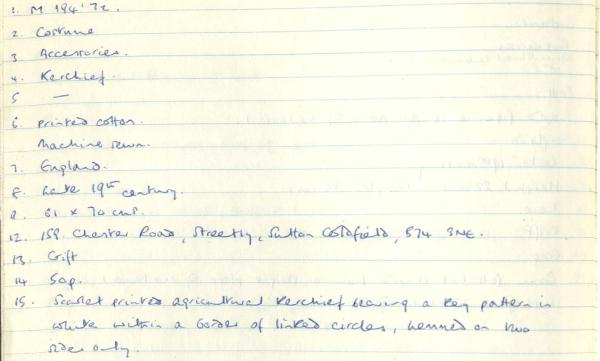 1. M 194'72.
2 Costume
3 Accessories.
4. Kerchief.
5 —
6. Printed cotton.
Machine sewn.
7. England.
8. Late 19th century.
9. 61 x 70 cms.
12. 158 Chester Road, Streetly, Sutton Coldfield, B74 3NE.
13. Gift
14 50p.
15. Scarlet printed agricultural kerchief bearing a key pattern in
white within a border of linked circles, hemmed on two
sides only.